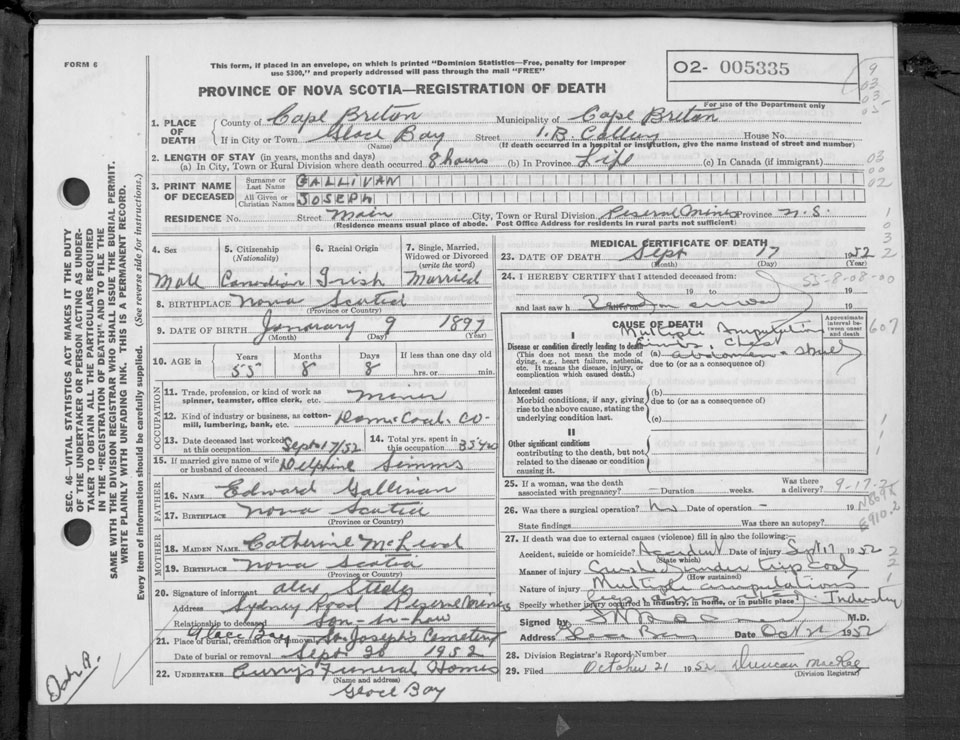 FORM 6
This form, if placed in an envelope, on which is printed "Dominion Statistics—Free, penalty for improper
use $300," and properly addressed will pass through the mail "FREE"
O2- 005335
9
03
03
PROVINCE OF NOVA SCOTIA—REGISTRATION OF DEATH
For use of the Department only
1. PLACE OF DEATH
County of Cape Breton Municipality of Cape Breton
If in City or Town Glace Bay Street House No.
(Name) (If death occurred in a hospital or institution, give the name instead of street and number)
2. LENGTH OF STAY (in years, months and days)
(a) In City, Town or Rural Division where death occurred 8 hours (b) In Province Life (c) In Canada (if immigrant)
03
00
02
3. PRINT NAME OF DECEASED
Surname or Last Name GALLIVAN
All Given or Christian Names JOSEPH
RESIDENCE No. Street Main City, Town or Rural Division Reserve Mines Province N.S.
(Residence means usual place of abode. Post Office Address for residents in rural parts not sufficient)
4. Sex Male
5. Citizenship (Nationality) Canadian
6. Racial Origin Irish
7. Single, Married, Widowed or Divorced (write the word) Married
8. BIRTHPLACE Nova Scotia
(Province or Country)
9. DATE OF BIRTH January 9 1897
(Month) (Day) (Year)
10. AGE in Years 55 Months 8 Days 8 If less than one day old
hrs. or min.
OCCUPATION
11. Trade, profession, or kind of work as
spinner, teamster, office clerk, etc. Miner
12. Kind of industry or business, as cotton-
mill, lumbering, bank, etc. Dom. Coal Co-
13. Date deceased last worked at this occupation Sept 17/52
14. Total yrs. spent in this occupation 35 yrs
15. If married give name of wife
or husband of deceased Delphine Simms
FATHER
16. NAME Edward Gallivan
17. BIRTHPLACE Nova Scotia
(Province or Country)
MOTHER
18. MAIDEN NAME Catherine McLeod
19. BIRTHPLACE Nova Scotia
(Province or Country)
20. Signature of informant Alex Steele
Address Sydney Road Reserve Mines
Relationship to deceased Son-in-law
21. Place of burial, cremation or removal Glace Bay St. Joseph's Cemetery
Date of burial or removal Sept 20 1952
22. UNDERTAKER Curry's Funeral Homes
(Name and address)
Glace Bay
MEDICAL CERTIFICATE OF DEATH
23. DATE OF DEATH Sept 17 1952
(Month) (Day) (Year)
24. I HEREBY CERTIFY that I attended deceased from:
55-8-08-00
19 to 19
and last saw h alive on 19
CAUSE OF DEATH
Approximate interval between onset and death
607
I
Disease or condition directly leading to death
(This does not mean the mode of
dying, e.g., heart failure, asthenia,
etc. It means the disease, injury, or
complication which caused death.)
Multiple Amputation
Limbs, Chest
(a) abdomen & skull
due to (or as a consequence of)
Antecedent causes
Morbid conditions, if any, giving
rise to the above cause, stating the
underlying condition last.
(b)
due to (or as a consequence of)
(c)
II
Other significant conditions
contributing to the death, but not
related to the disease or condition
causing it.
25. If a woman, was the death
associated with pregnancy? — Duration weeks. Was there a delivery?
9-17-2
26. Was there a surgical operation? No Date of operation — 19
State findings Was there an autopsy?
E910.2
27. If death was due to external causes (violence) fill in also the following:
Accident, suicide or homicide? Accident Date of injury Sept 17 1952
(State which)
Manner of injury Crushed under trip coal
(How sustained)
Nature of injury Multiple amputations
Specify whether injury occurred in industry, in home, or in public place Industry
Signed by M.D.
Address Glace Bay Date Oct 21 1952
28. Division Registrar's Record Number
29. Filed October 21 1952 Duncan MacRae
(Division Registrar)
SEC. 46—VITAL STATISTICS ACT MAKES IT THE DUTY
OF THE UNDERTAKER OR PERSON ACTING AS UNDER-
TAKER TO OBTAIN ALL THE PARTICULARS REQUIRED
IN THE "REGISTRATION OF DEATH" AND TO FILE THE
SAME WITH THE DIVISION REGISTRAR WHO SHALL ISSUE THE BURIAL PERMIT.
WRITE PLAINLY WITH UNFADING INK. THIS IS A PERMANENT RECORD.
Every item of information should be carefully supplied. (See reverse side for instructions.)